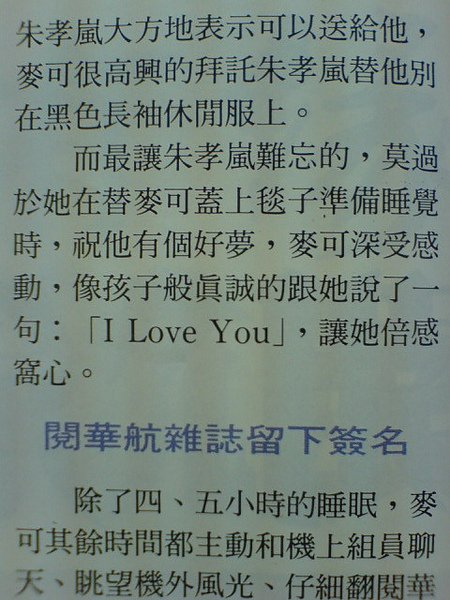 朱孝嵐大方地表示可以送給他，
麥可很高興的拜託朱孝嵐替他別
在黑色長袖休閒服上。
而最讓朱孝嵐難忘的，莫過
於她在替麥可蓋上毯子準備睡覺
時，祝他有個好夢，麥可深受感
動，像孩子般眞誠的跟她說了一
句：「I Love You」，讓她倍感
窩心。
閱華航雜誌留下簽名
除了四、五小時的睡眠，麥
可其餘時間都主動和機上組員聊
天、眺望機外風光、仔細翻閱華